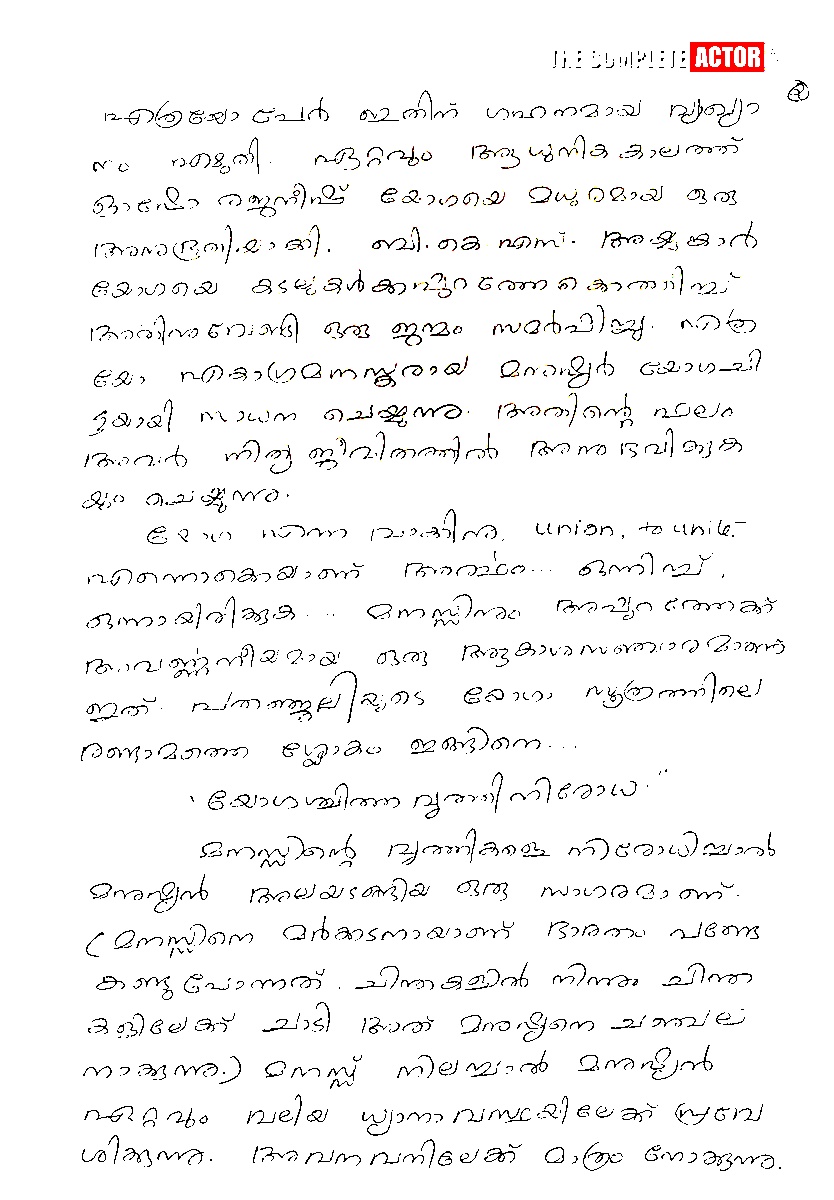 THE COMPLETE ACTOR
എത്രയോ പേർ ഇതിന് ഗഹനമായ വ്യാഖ്യാ
നം എഴുതി. ഏറ്റവും ആധുനിക കാലത്ത്
ഓഷോ രജ്നീഷ് യോഗയെ മധുരമായ ഒരു
അനുഭൂതിയാക്കി. ബി.കെ എസ്. അയ്യങ്കാർ
യോഗയെ കടലുകൾക്കപ്പുറത്തേക്കെത്തിച്ച്
അതിനുവേണ്ടി ഒരു ജന്മം സമർപ്പിച്ചു. എത്ര
യോ ഏകാഗ്രമനസ്കരായ മനുഷ്യർ യോഗചി
ട്ടയായി സാധന ചെയ്യുന്നു. അതിന്റെ ഫലം
അവർ നിത്യജീവിതത്തിൽ അനുഭവിക്കുക
യും ചെയ്യുന്നു.
യോഗ എന്ന വാക്കിനു, union, to unite
എന്നൊക്കെയാണ് അർഥം... ഒന്നിച്ച്,
ഒന്നായിരിക്കുക... മനസ്സിനും അപ്പുറത്തേക്ക്
അവർണ്ണനീയമായ ഒരു ആകാശസഞ്ചാരമാണ്
ഇത്. പതഞ്ജലിയുടെ യോഗാ സൂത്രത്തിലെ
രണ്ടാമത്തെ ശ്ലോകം ഇങ്ങിനെ...
"യോഗശ്ചിത്ത വൃത്തി നിരോധ"
മനസ്സിന്റെ വൃത്തികളെ നിരോധിച്ചാൽ
മനുഷ്യൻ അലയടങ്ങിയ ഒരു സാഗരമാണ്.
(മനസ്സിനെ മർക്കടനായാണ് ഭാരതം പണ്ടേ
കണ്ടുപോന്നത്. ചിന്തകളിൽ നിന്നും ചിന്ത
കളിലേക്ക് ചാടി അത് മനുഷ്യനെ ചഞ്ചല
നാക്കുന്നു.) മനസ്സ് നിലച്ചാൽ മനുഷ്യൻ
ഏറ്റവും വലിയ ധ്യാനാവസ്ഥയിലേക്ക് പ്രവേ
ശിക്കുന്നു. അവനവനിലേക്ക് മാത്രം നോക്കുന്നു.